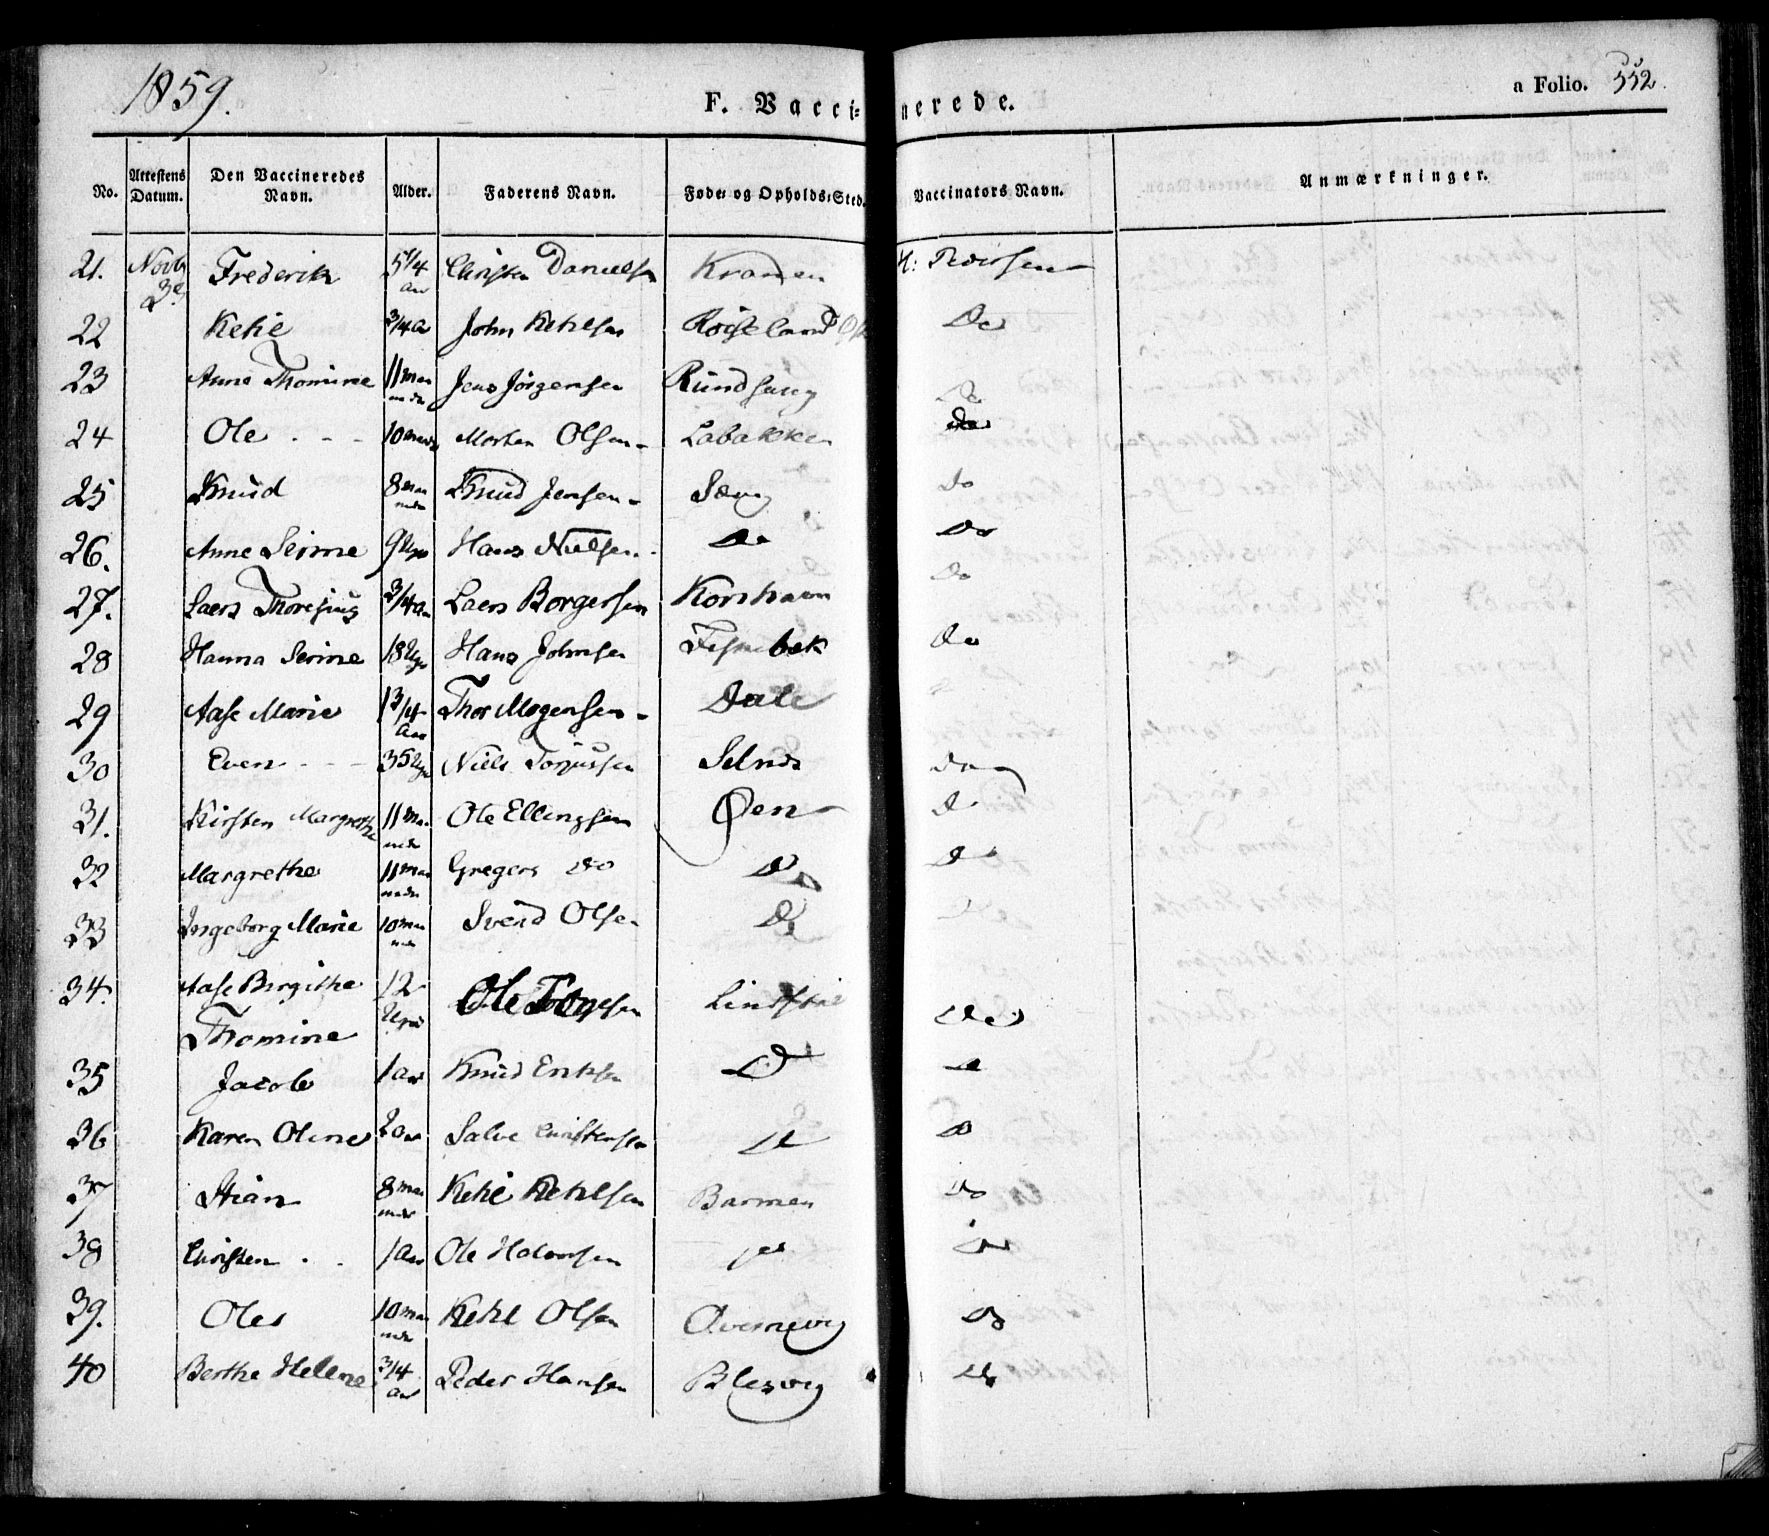 1859. F. Vaccinerede. a Folio. 552.
No. Attestens Datum. Den Vaccineredes Navn. Alder. Faderens Navn. Føde- og Opholds-Sted. Vaccinators Navn. Anmærkninger.
21. Novb 3 Frederik 5 1/4 aar Christen Danielsen
22 Ketil 3/4 a John Ketilsen Do
23 Anne Thomine 11 maaneder Jens Jörgensen Do
24 Ole - - 10 Morten Olsen Labakken Do
25 Knud 8 maaneder Knud Jensen Do
26. Anne Serine 9 Uger Hans Nielsen Do Do
27. Laers 3/4 aar Laers Borgersen Korshavn Do
28 Hanna Serine 18 Uger Hans Johnsen Do
29 Aase Marie 1 3/4 Aar Thor Mogensen Dale
30 Even - - 35 Uger Niels Torjussen Selnes Do
31. Kirsten Margrethe 11 maaneder Ole Ellingsen Øen Do
32 Margrethe 11 maaneder Gregers Do Do Do
33 Ingeborg Marie 10 maaneder Svend Olsen Do
34. Aase Birgithe 12 Ole
Thomine Uger Do
35 Jacob 1 aar Knud Eriksen Do Do
36 Karen Oline 2 aar Salve Christensen Do Do
37 Stian 8 maaneder Ketil Ketilsen Barmen Do
38 Christen - - 1 aar Ole Halvorsen Do Do
39. Ole 10 maaneder Ketil Olsen Do
40 Berthe Helene 3/4 aar Peder Hansen Blesvig Do